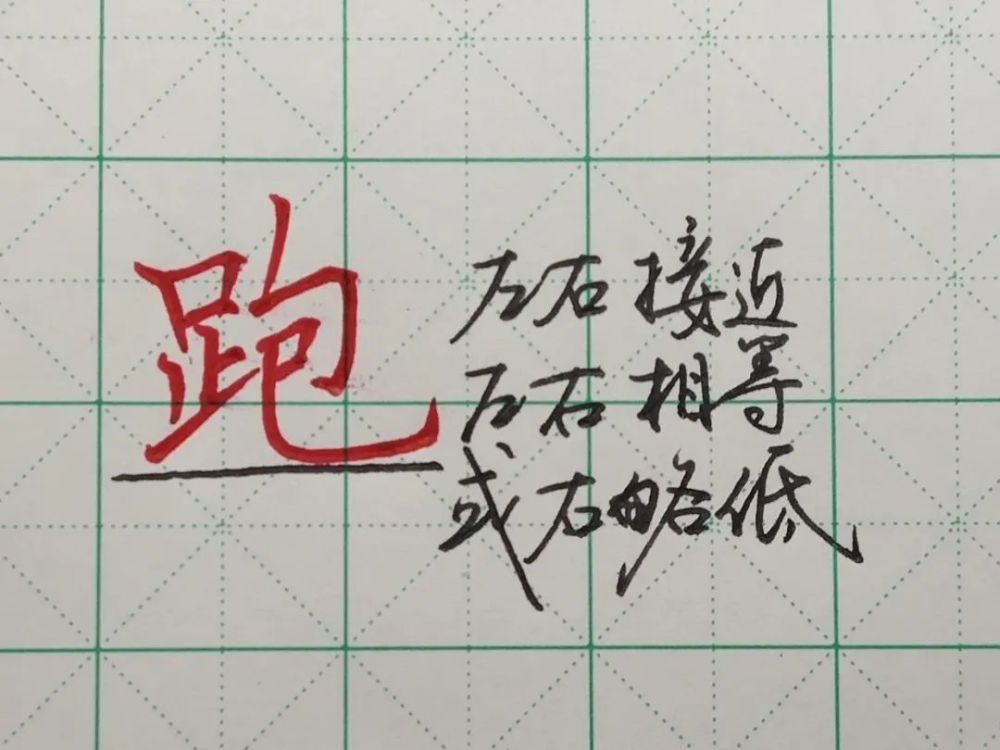 跑
左右接近
左右相等
或右略低